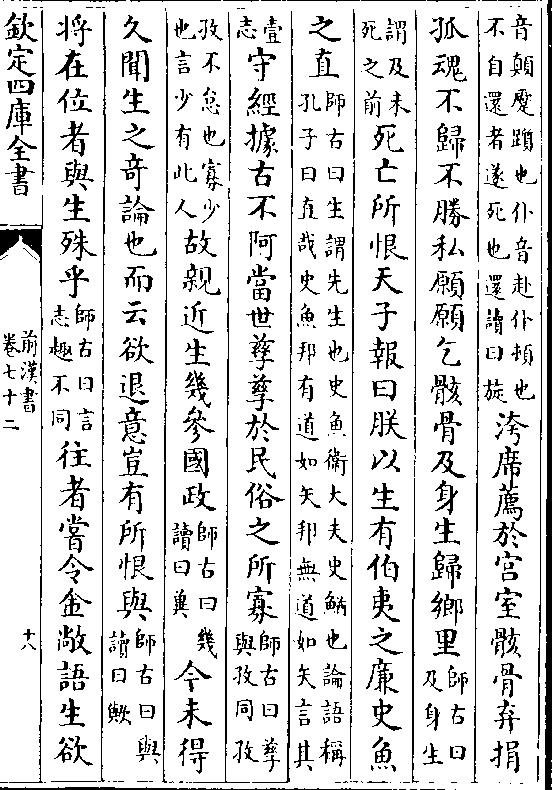 音顛蹷躓也仆音赴仆頓也
不自還者遂死也還讀曰旋
洿席薦於宫室骸骨弃捐
孤魂不歸不勝私願願乞骸骨及身生歸鄉里
師古曰
及身生
謂及未
死之前
死亡所恨天子報曰朕以生有伯夷之廉史魚
之直
師古曰生謂先生也史魚衛大夫史鰌也論語稱
孔子曰直哉史魚邦有道如矢邦無道如矢言其
壹
志
守經據古不阿當世孳孳於民俗之所寡
師古曰孳
與孜同孜
孜不怠也寡少
也言少有此人
故親近生幾參國政
師古曰幾
讀曰兾
今未得
久聞生之奇論也而云欲退意豈有所恨與
師古曰與
讀曰歟
将在位者與生殊乎
師古曰言
志趣不同
往者嘗令金敞語生欲
欽定四庫全書
前漢書
卷七十二
十八